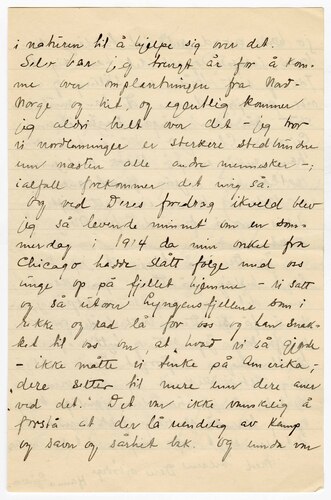 i naturen til å hjelpe sig over det.
Selv har jeg trengt år for å kom-
me over omplantningen fra Nord-
Norge og hit, og egentlig kommer
jeg aldri helt over det - jeg tror
vi nordlendinger er sterkere stedbundne
enn næsten alle andre mennesker -;
ialfall forekommer det mig så.
Og ved Deres foredrag ikveld blev
jeg så levende minnet om en som-
merdag i 1914 da min onkel fra
Chicago hadde slått følge med oss
unge op på fjellet hjemme - vi satt
og så utover Lyngensfjellene som i
rekke og rad lå for oss og han snak-
ket til oss om, at "hvad vi så gjorde
- ikke måtte vi tenke på Amerika;
dere sitter til mere enn dere aner
ved det." Det var ikke vanskelig å
forstå at der lå uendelig av kamp
og savn og sårhet bak. Og ennda var